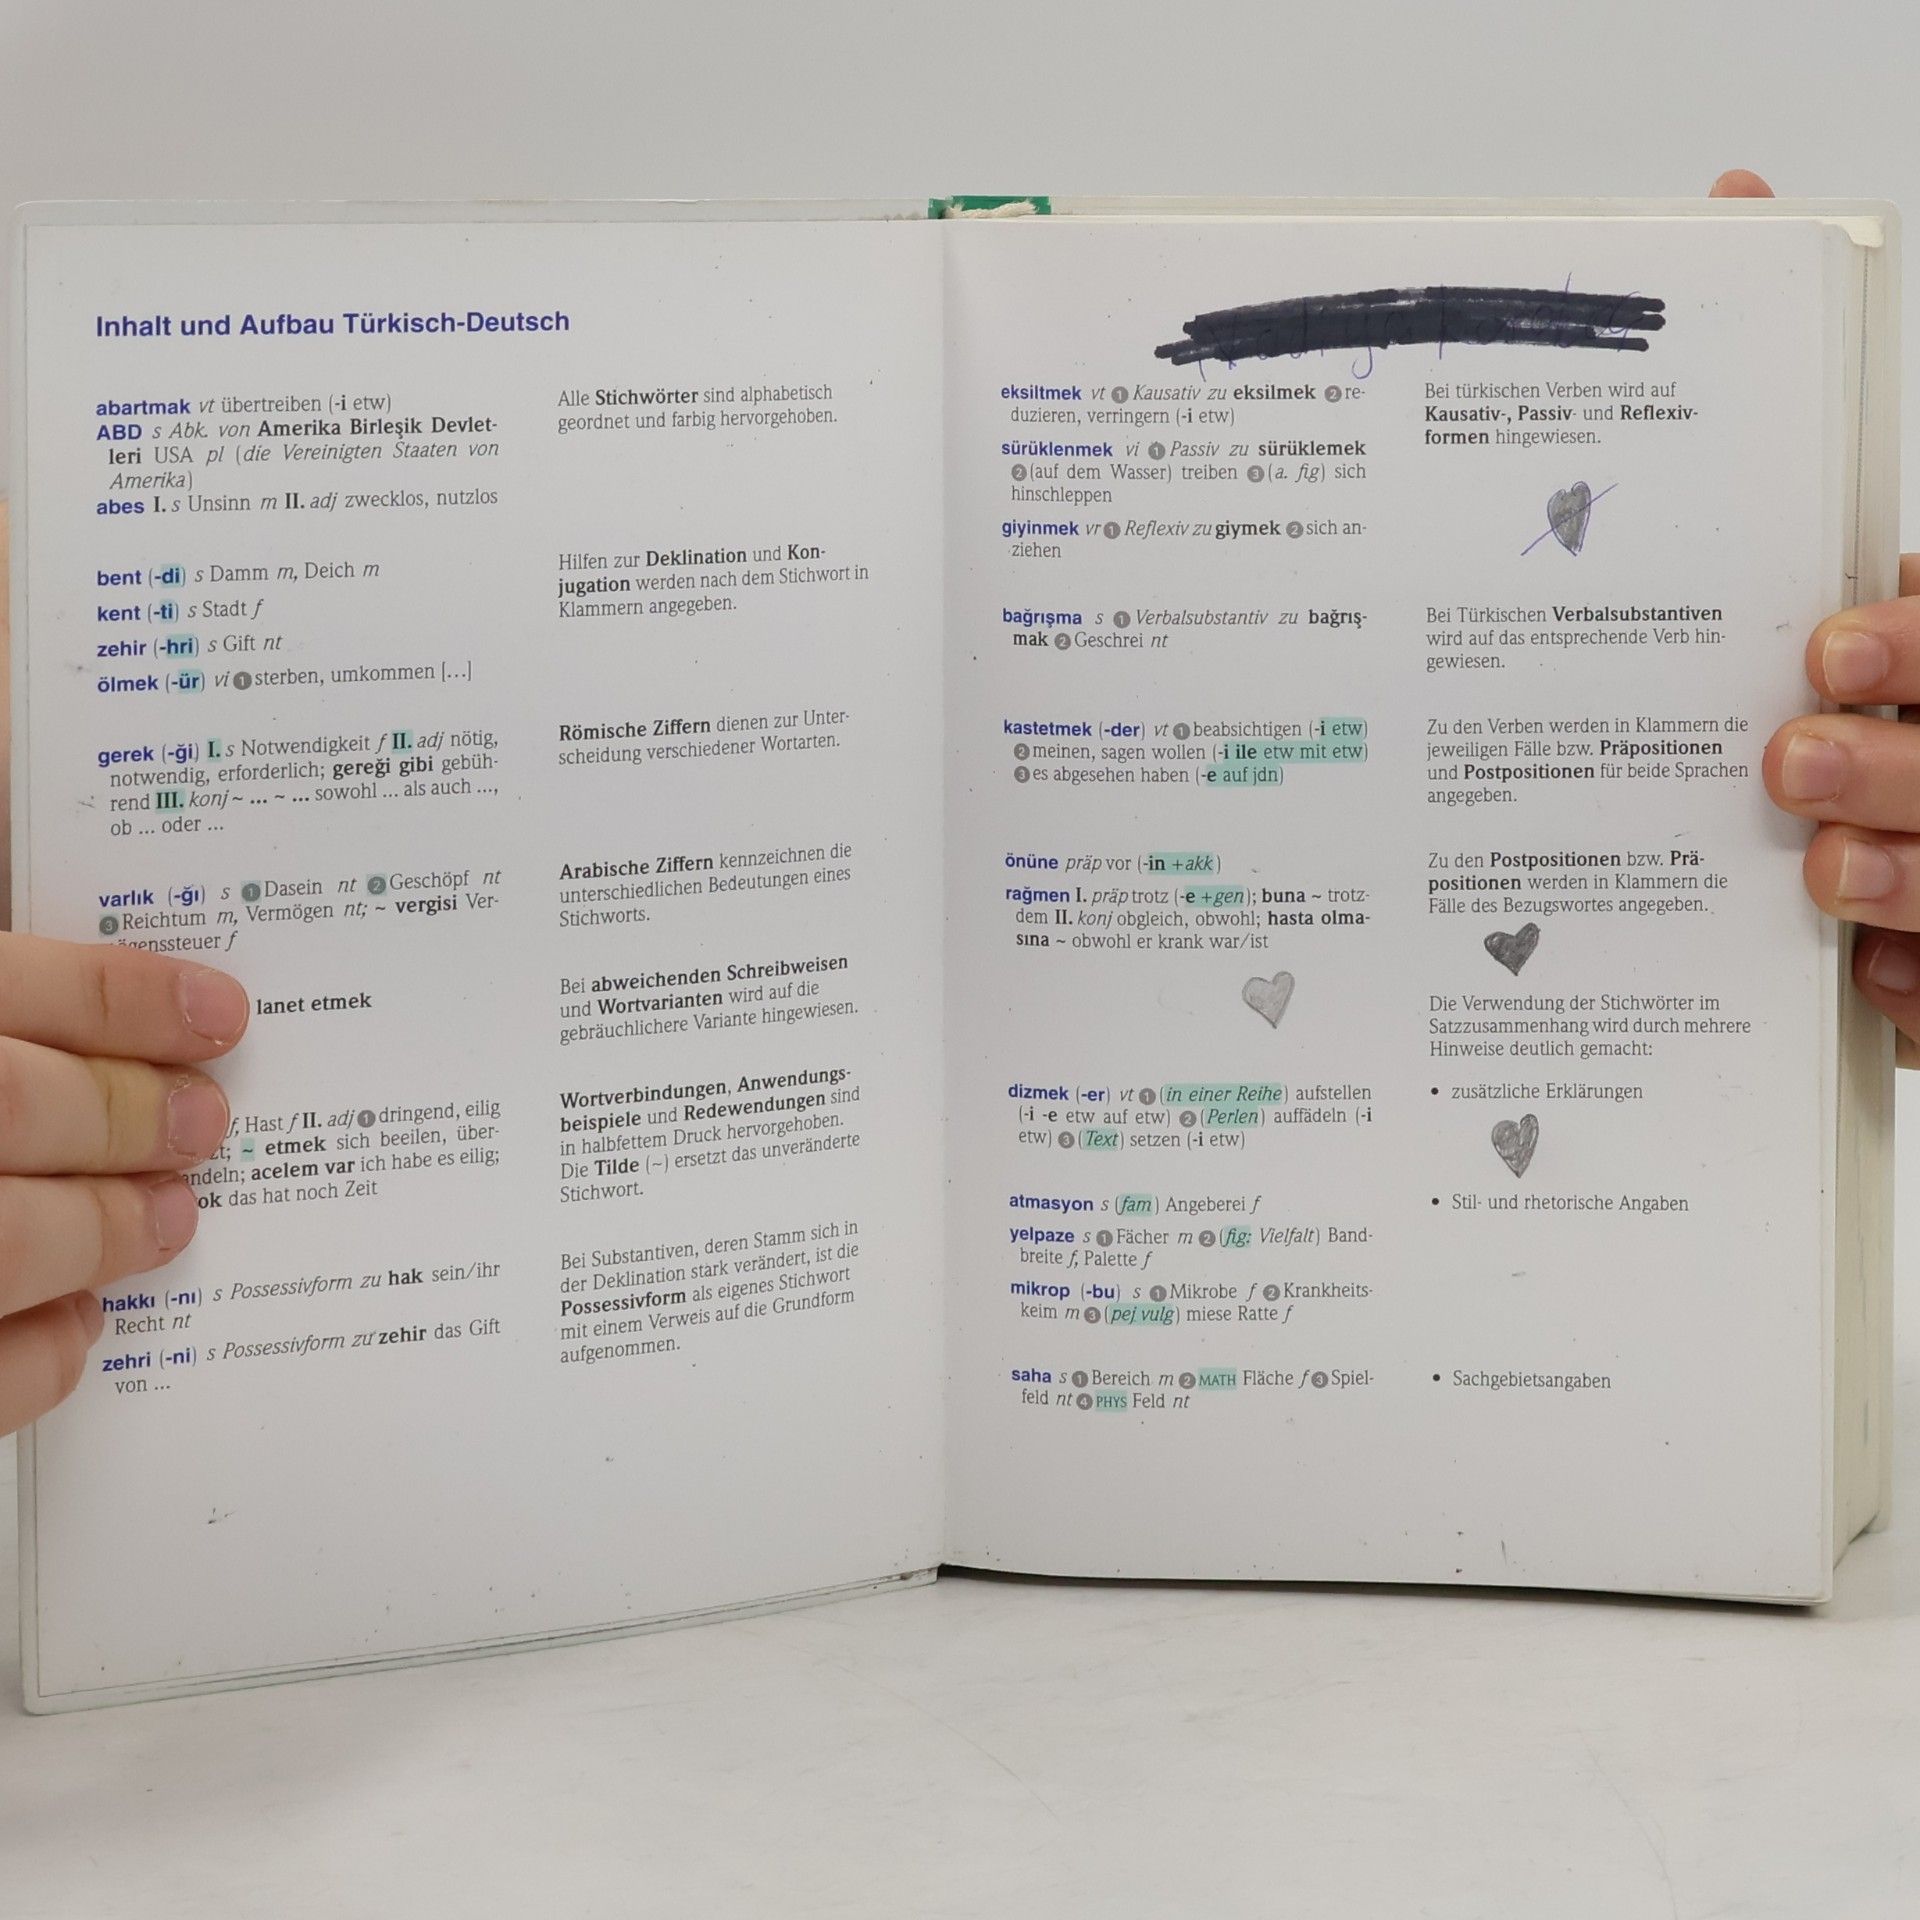 Inhalt und Aufbau Türkisch-Deutsch
abartmak vt übertreiben (-i etw)
ABD s Abk. von Amerika Birleşik Devlet-
leri USA pl (die Vereinigten Staaten von
Amerika)
abes I. s Unsinn m II. adj zwecklos, nutzlos
Alle Stichwörter sind alphabetisch
geordnet und farbig hervorgehoben.
bent (-di) s Damm m, Deich m
kent (-ti) s Stadt f
zehir (-hri) s Gift nt
ölmek (-ür) vi ❶ sterben, umkommen [...]
Hilfen zur Deklination und Kon-
jugation werden nach dem Stichwort in
Klammern angegeben.
gerek (-ği) I. s Notwendigkeit f II. adj nötig,
notwendig, erforderlich; gereği gibi gebüh-
rend III. konj ~ ... ~ ... sowohl ... als auch ...,
ob ... oder ...
Römische Ziffern dienen zur Unter-
scheidung verschiedener Wortarten.
varlık (-ğı) s ❶ Dasein nt ❷ Geschöpf nt
❸ Reichtum m, Vermögen nt; ~ vergisi Ver-
genssteuer f
Arabische Ziffern kennzeichnen die
unterschiedlichen Bedeutungen eines
Stichworts.
lanet etmek
Bei abweichenden Schreibweisen
und Wortvarianten wird auf die
gebräuchlichere Variante hingewiesen.
f, Hast f II. adj ❶ dringend, eilig
zt; ~ etmek sich beeilen, über-
ndeln; acelem var ich habe es eilig;
ok das hat noch Zeit
Wortverbindungen, Anwendungs-
beispiele und Redewendungen sind
in halbfettem Druck hervorgehoben.
Die Tilde (~) ersetzt das unveränderte
Stichwort.
hakkı (-nı) s Possessivform zu hak sein/ihr
Recht nt
zehri (-ni) s Possessivform zu zehir das Gift
von ...
Bei Substantiven, deren Stamm sich in
der Deklination stark verändert, ist die
Possessivform als eigenes Stichwort
mit einem Verweis auf die Grundform
aufgenommen.
eksiltmek vt ❶ Kausativ zu eksilmek ❷ re-
duzieren, verringern (-i etw)
sürüklenmek vi ❶ Passiv zu sürüklemek
❷ (auf dem Wasser) treiben ❸ (a. fig) sich
hinschleppen
giyinmek vr ❶ Reflexiv zu giymek ❷ sich an-
ziehen
Bei türkischen Verben wird auf
Kausativ-, Passiv- und Reflexiv-
formen hingewiesen.
bağrışma s ❶ Verbalsubstantiv zu bağrış-
mak ❷ Geschrei nt
Bei Türkischen Verbalsubstantiven
wird auf das entsprechende Verb hin-
gewiesen.
kastetmek (-der) vt ❶ beabsichtigen (-i etw)
❷ meinen, sagen wollen (-i ile etw mit etw)
❸ es abgesehen haben (-e auf jdn)
Zu den Verben werden in Klammern die
jeweiligen Fälle bzw. Präpositionen
und Postpositionen für beide Sprachen
angegeben.
önüne präp vor (-in +akk)
rağmen I. präp trotz (-e +gen); buna ~ trotz-
dem II. konj obgleich, obwohl; hasta olma-
sına ~ obwohl er krank war/ist
Zu den Postpositionen bzw. Prä-
positionen werden in Klammern die
Fälle des Bezugswortes angegeben.
Die Verwendung der Stichwörter im
Satzzusammenhang wird durch mehrere
Hinweise deutlich gemacht:
dizmek (-er) vt ❶ (in einer Reihe) aufstellen
(-i -e etw auf etw) ❷ (Perlen) auffädeln (-i
etw) ❸ (Text) setzen (-i etw)
• zusätzliche Erklärungen
atmasyon s (fam) Angeberei f
yelpaze s ❶ Fächer m ❷ (fig: Vielfalt) Band-
breite f, Palette f
mikrop (-bu) s ❶ Mikrobe f ❷ Krankheits-
keim m ❸ (pej vulg) miese Ratte f
• Stil- und rhetorische Angaben
saha s ❶ Bereich m ❷ MATH Fläche f ❸ Spiel-
feld nt ❹ PHYS Feld nt
• Sachgebietsangaben